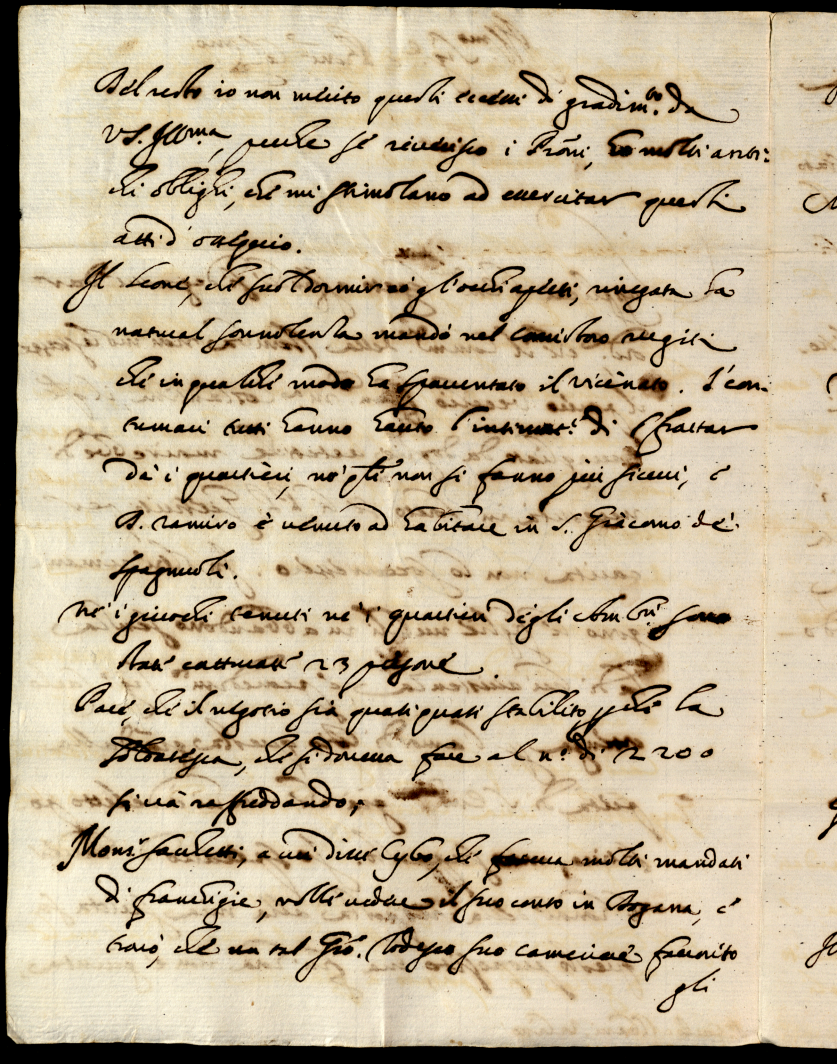 Del resto io non merito questi eccessi di gradim.to da
VS. Illma, perche se riverisco i Proni, ho molti anti:
chi oblighi, che mi stimolano ad exercitar questi
atti d'ossequio.
Il Leone, che suol dormir con gl'occhi aperti, rinegata la
natural sonnolenza mandò nel Concistoro ruggiti
che in qualche modo ha spaventato il vicinato. I con:
tumaci tutti hanno hauto l'intimat.e di sfrattar
da i quartieri, nè pti non si fanno più sicuri, e
D. Ramiro è venuto ad habitare in S. Giacomo de'
Spagnuoli.
Ne' i giuochi tenuti ne' i quartieri degli Ambri sono
state catturate 23 persone
Pare, che il negotio sia quasi quasi stabilito, perche la
soldatesca, che si doveva fare al n.o di 2200
si và raffreddando;
Monsr Sacchetti, a cui disse Cybo, che faceva molti mandati
di franchigie, volle vedere il suo conto in Dogana, e
trovò, che un tal Gio. Todesco suo cameriere favorito
gli